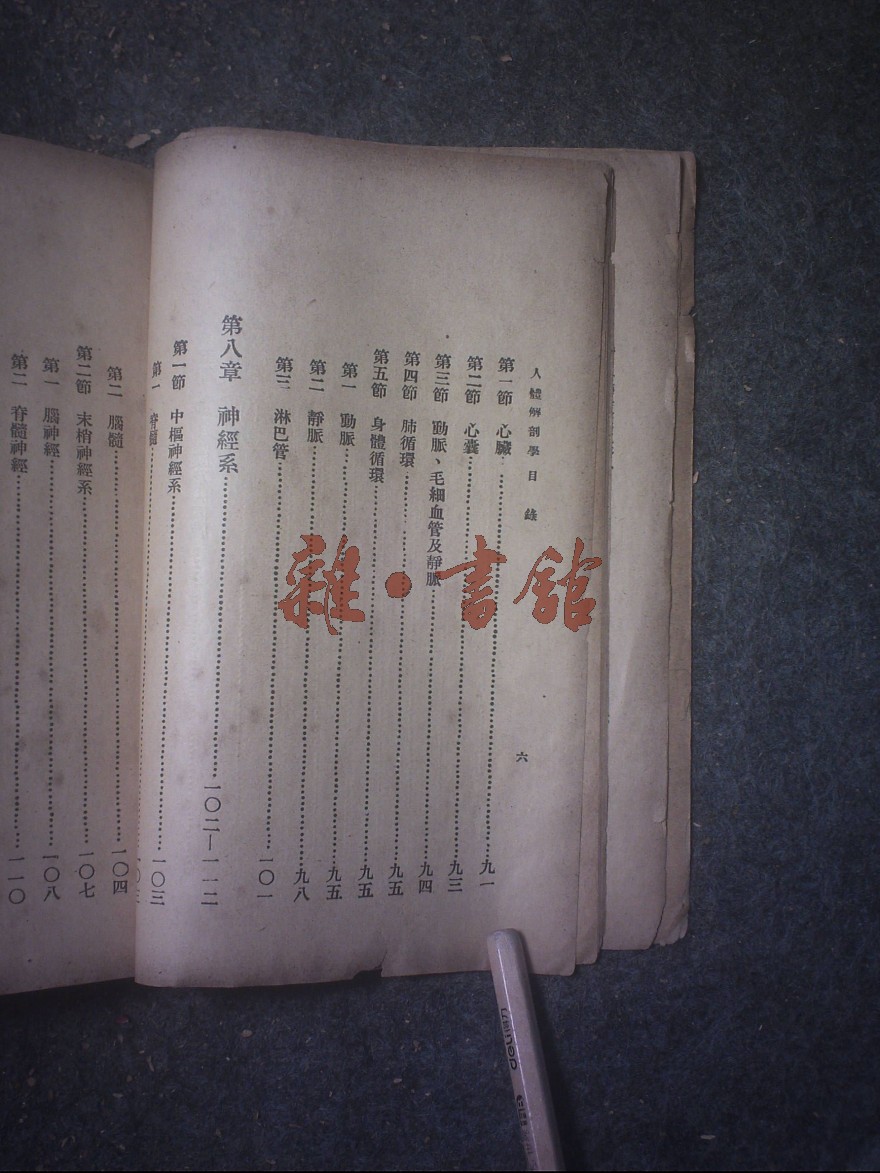 人體解剖學 目錄 六
第一節 心臟……九一
第二節 心囊……九三
第三節 動脈、毛細血管及靜脈……九四
第四節 肺循環……九五
第五節 身體循環……九五
第一 動脈……九五
第二 靜脈……九八
第三 淋巴管……一〇一
第八章 神經系……一〇二—一一二
第一節 中樞神經系……一〇三
第一 脊髓……
第二 腦髓……一〇四
第二節 末梢神經系……一〇七
第一 腦神經……一〇八
第二 脊髓神經……一一〇
雜·書館